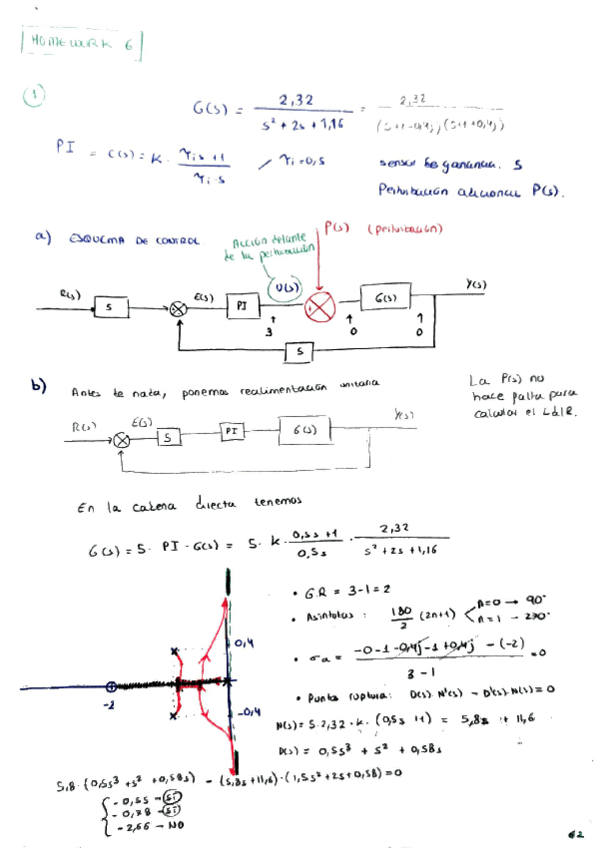 HOMEWORK 6
1
G(s) = 2,32 / s² + 2s + 1,16 = 2,32 / (s+1-0,4j)(s+1+0,4j)
PI = C(s) = K · τi s + 1 / τi · s / τi = 0,5
sensor de ganancia 5
Perturbación adicional P(s).
a) ESQUEMA DE CONTROL
Acción delante de la perturbación
P(s) (perturbación)
R(s) 5 E(s) PI U(s) + G(s) Y(s)
3 0 0
5
b) Antes de nada, ponemos realimentación unitaria
La P(s) no
hace falta para
calcular el LdlR.
R(s) E(s) 5 PI G(s) Y(s)
En la cadena directa tenemos
G(s) = 5 · PI · G(s) = 5 · K · 0,5s + 1 / 0,5s · 2,32 / s² + 2s + 1,16
· GR = 3-1 = 2
· Asíntotas : 180 / 2 (2n+1) n=0 → 90°
n=1 → 270°
· σa = -0-1-0,4j-1+0,4j - (-2) / 3-1 = 0
· Puntos ruptura: D(s)·N'(s) - D'(s)·N(s) = 0
N(s) = 5·2,32·K·(0,5s+1) = 5,8s + 11,6
D(s) = 0,5s³ + s² + 0,58s
0,4
-0,4
-2
5,8·(0,5s³ + s² + 0,58s) - (5,8s+11,6)·(1,5s²+2s+0,58) = 0
-0,55 → Sí
-0,78 → Sí
-2,66 → NO
62